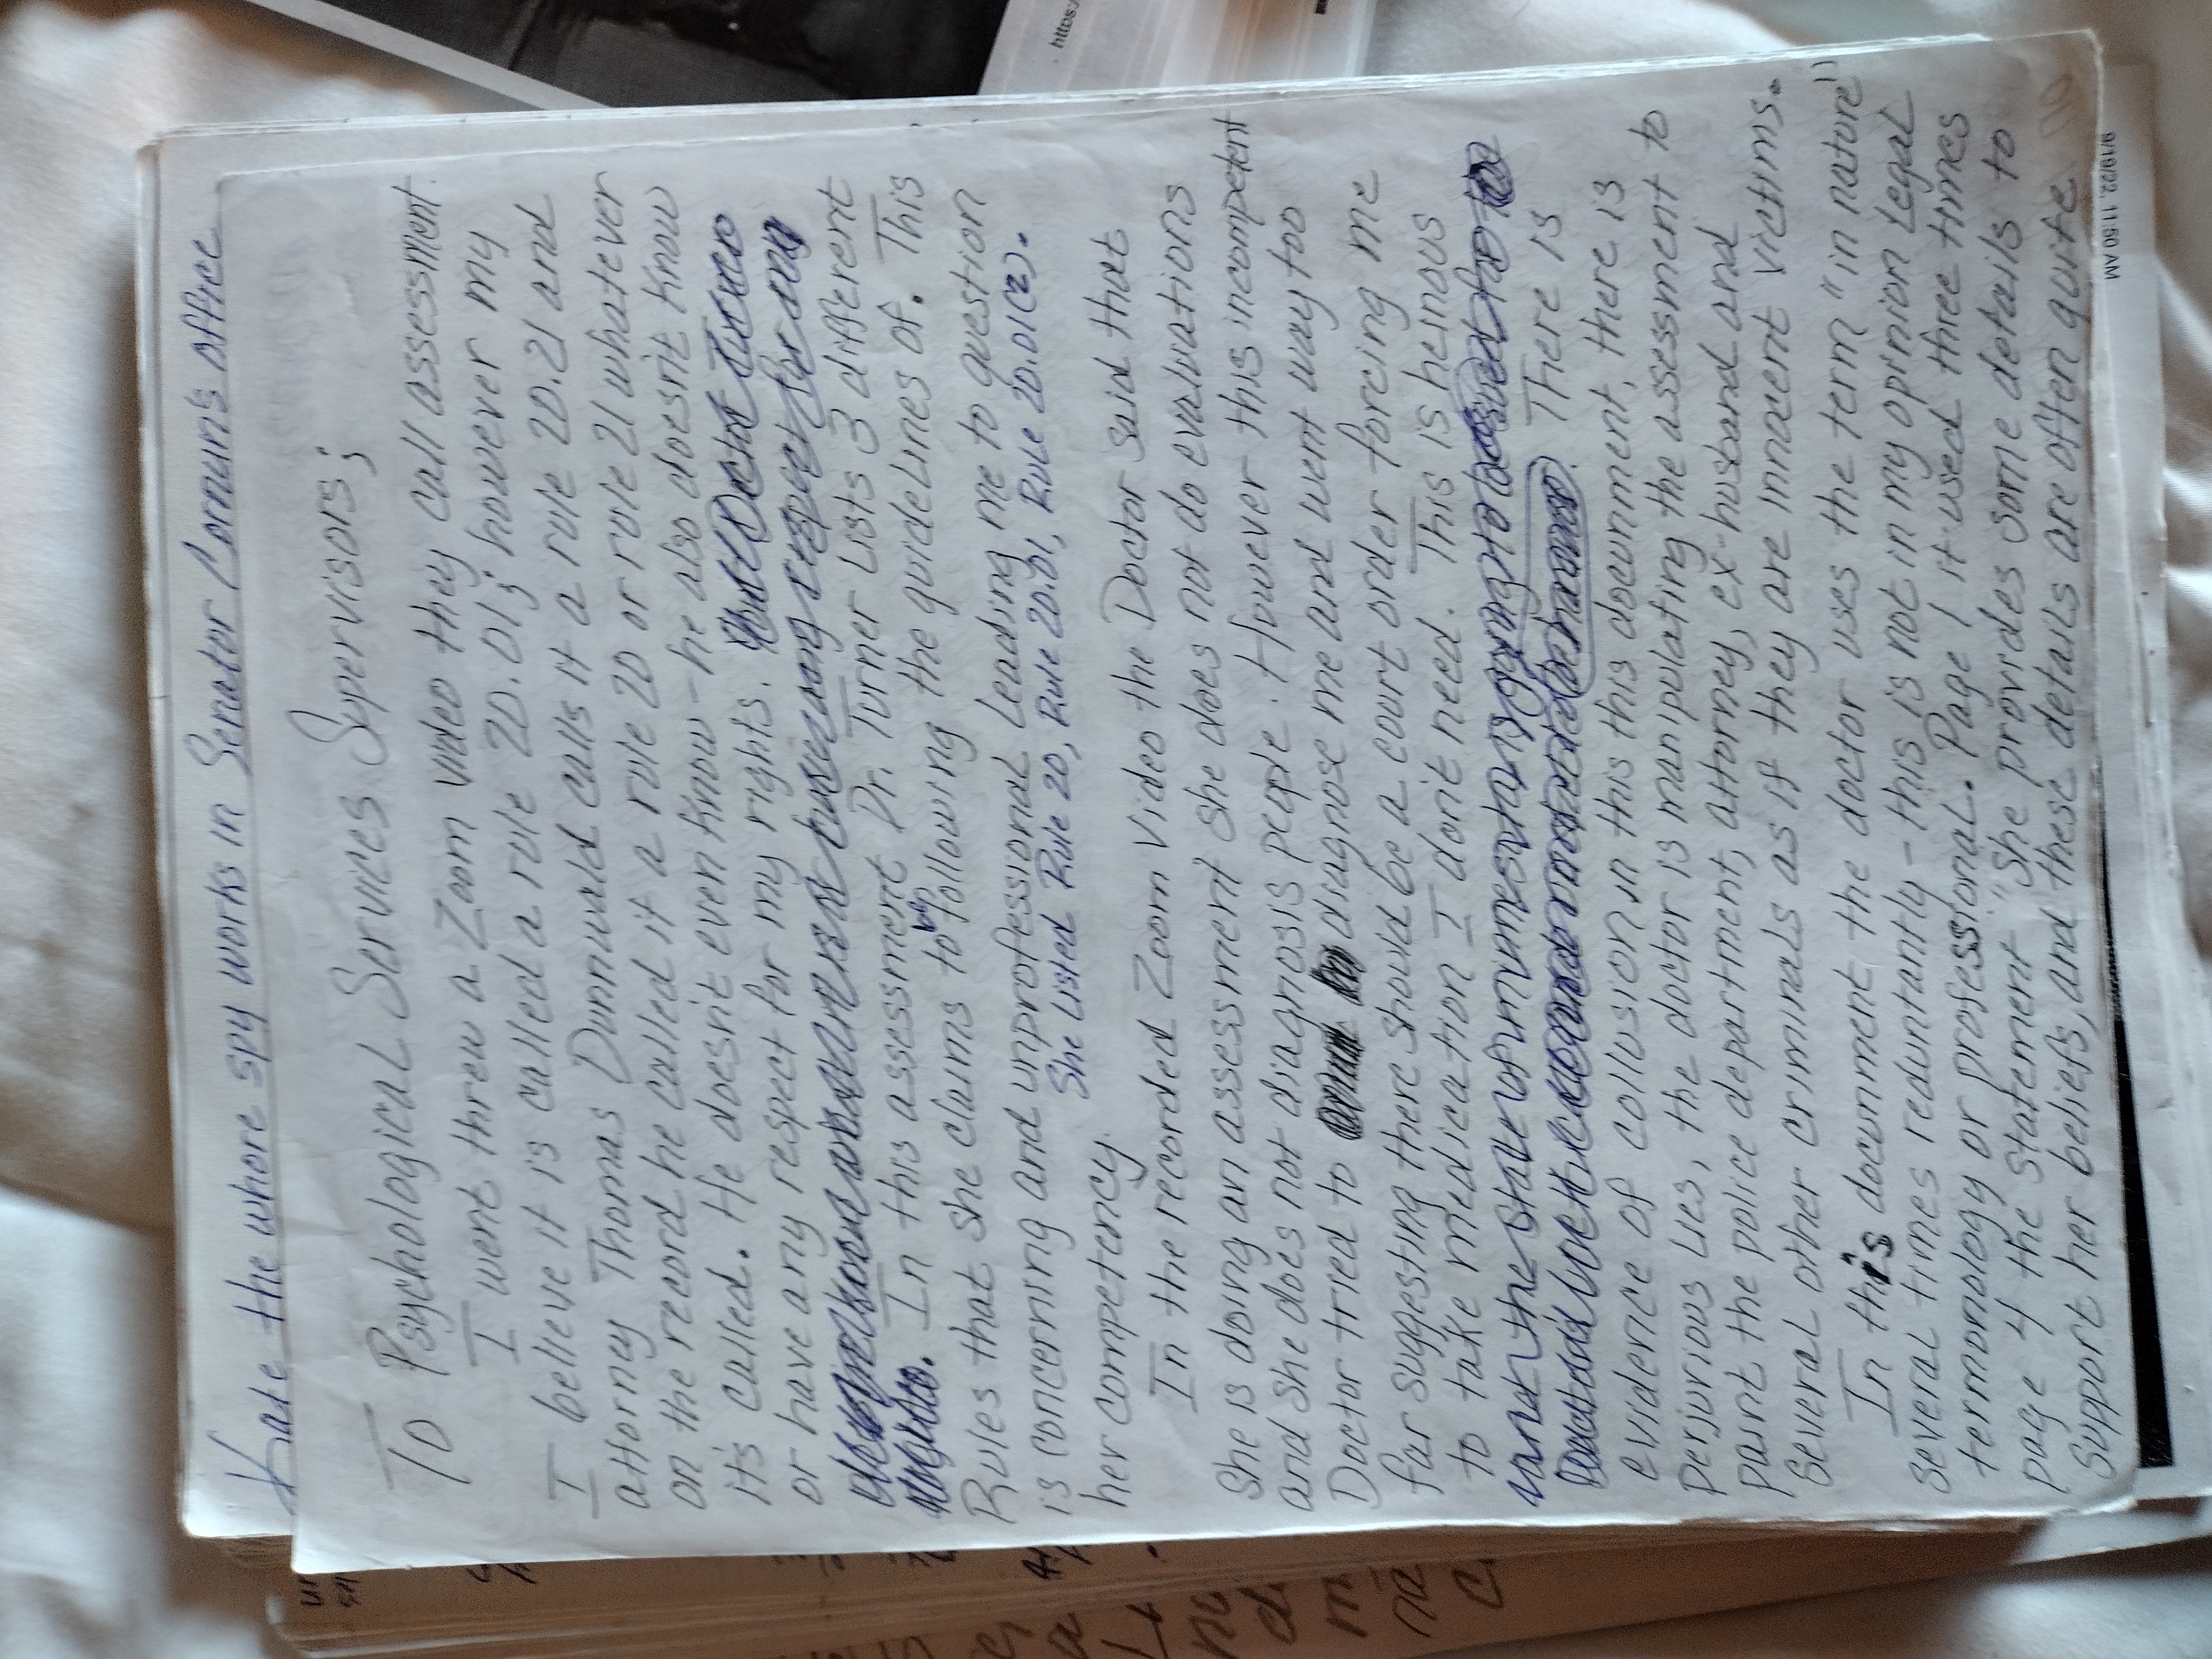 Kate the whore spy works in Senator Cornun's office
To Psychological Services Supervisors;
I went threw a Zoom video they call assessment
I believe it is called a rule 20.01; however my
attorney Thomas Dunnwald calls it a rule 20.21 and
on the record he called it a rule 20 or rule 21 whatever
it's called. He doesn't even know - he also doesn't know
or have any respect for my rights.
In this assessment Dr. Turner Lists 3 different
Rules that she claims to be following the guidelines of. This
is concerning and unprofessional Leading me to question
her competency.
She Listed Rule 20, Rule 20.01, Rule 20.01(2).
In the recorded Zoom Video the Doctor said that
She is doing an assessment she does not do evaluations
and she does not diagnosis people. However this incompetent
Doctor tried to disagnose me and went way too
far suggesting there should be a court order forcing me
to take medication I don't need. This is heinous
There is
evidence of collusion in this this document, there is
perjurious lies, the doctor is manipulating the assessment to
paint the police department, attorney, ex-husband and
Several other criminals as if they are innocent victims.
In this document the doctor uses the term "in nature"
several times reduntantly - this is not in my opinion legal
termonology or professional. Page 1 it used three times
page 4 the statement "She provides some details to
support her beliefs, and these details are often quite
9/19/22, 11:50 AM
https:/